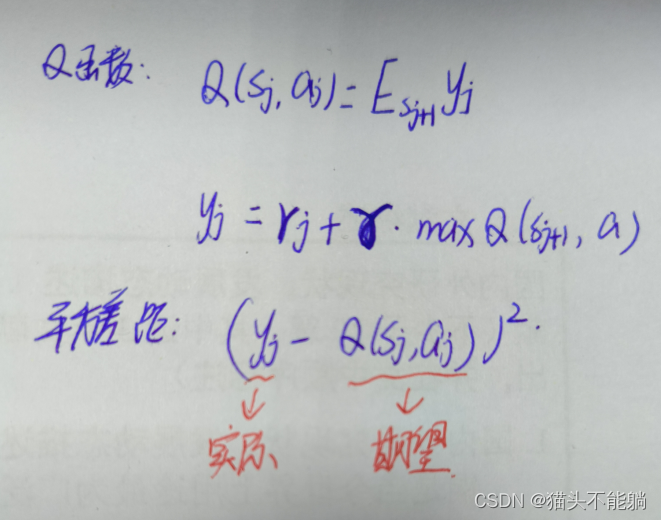 Q函数: Q(sj, aj) = E sj+1 yj
yj = rj + γ · max Q(sj+1, a)
平方差距: (yj - Q(sj, aj))².
↓ ↓
实际 期望
CSDN @猫头不能躺